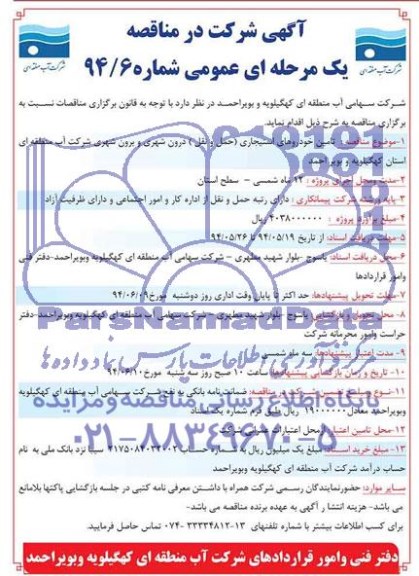 آگهی شرکت در مناقصه
یک مرحله ای عمومی شماره ۹۴/۶
شرکت آب منطقه ای
شرکت آب منطقه ای
شرکت سهامی آب منطقه ای کهگیلویه و بویراحمد در نظر دارد با توجه به قانون برگزاری مناقصات نسبت به
برگزاری مناقصه به شرح ذیل اقدام نماید.
۱-موضوع مناقصه : تامین خودروهای استیجاری (حمل و نقل ) درون شهری و برون شهری شرکت آب منطقه ای
استان کهگیلویه و بویر احمد
۲-مدت ومحل اجرای پروژه : ۱۲ ماه شمسی – سطح استان
۳- پایه ورشته شرکت پیمانکاری : دارای رتبه حمل و نقل از اداره کار و امور اجتماعی و دارای ظرفیت آزاد
۴- مبلغ برآورد پروژه : ۴۰۳۸۰۰۰۰۰۰ ریال
۵- مهلت دریافت اسناد: از تاریخ ۹۴/۰۵/۱۹ تا ۹۴/۰۵/۲۶
۶- محل دریافت اسناد: یاسوج -بلوار شهید مطهری – شرکت سهامی آب منطقه ای کهگیلویه وبویراحمد-دفتر فنی
وامور قراردادها
۷- مهلت تحویل پیشنهادها: حد اکثر تا پایان وقت اداری روز دوشنبه مورخ ۹۴/۰۶/۰۹
۸- محل تحویل و بازگشایی: یاسوج -بلوار شهید مطهری – شرکت آب منطقه ای کهگیلویه وبویراحمد-دفتر
حراست وامور محرمانه شرکت
۹- مدت اعتبار پیشنهادها: سه ماه شمسی
۱۰- تاریخ و زمان بازگشایی پیشنهادها: ساعت ۱۰ صبح روز سه شنبه مورخ ۹۴/۰۶/۱۰
۱۱- نوع و مبلغ مناقصه: ضمانت نامه بانکی به نفع شرکت سهامی آب منطقه ای کهگیلویه
وبویراحمد معادل ۱۹۰۰۰۰۰۰۰ ریال طبق فرم شماره یک اسناد
۱۲- محل تامین اعتبار: از محل اعتبارات شرکت
۱۳- مبلغ خرید اسناد: مبلغ یک میلیون ریال به شماره حساب سیبا نزد بانک ملی به نام
حساب درآمد شرکت آب منطقه ای کهگیلویه وبویراحمد
سایر موارد: حضورنمایندگان رسمی شرکت همراه با داشتن معرفی نامه کتبی در جلسه بازگشایی پاکتها بلامانع
می باشد- هزینه انتشار آگهی به عهده برنده مناقصه می باشد-
برای کسب اطلاعات بیشتر با شماره تلفنهای ۱۳-۳۳۳۳۴۸۱۲ -۰۷۴ تماس حاصل فرمایید.
دفتر فنی وامور قراردادهای شرکت آب منطقه ای کهگیلویه وبویراحمد
ParsNamadData
مرکز فرآوری اطلاعات پارس نماد داده ها
پایگاه اطلاع رسانی مناقصه و مزایده
۰۲۱-۸۸۳۴۹۶۷۰-۵